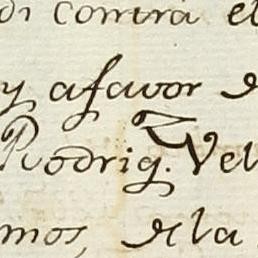 di contra el
y afavor de
Rodrig.z Vel
mos, de la